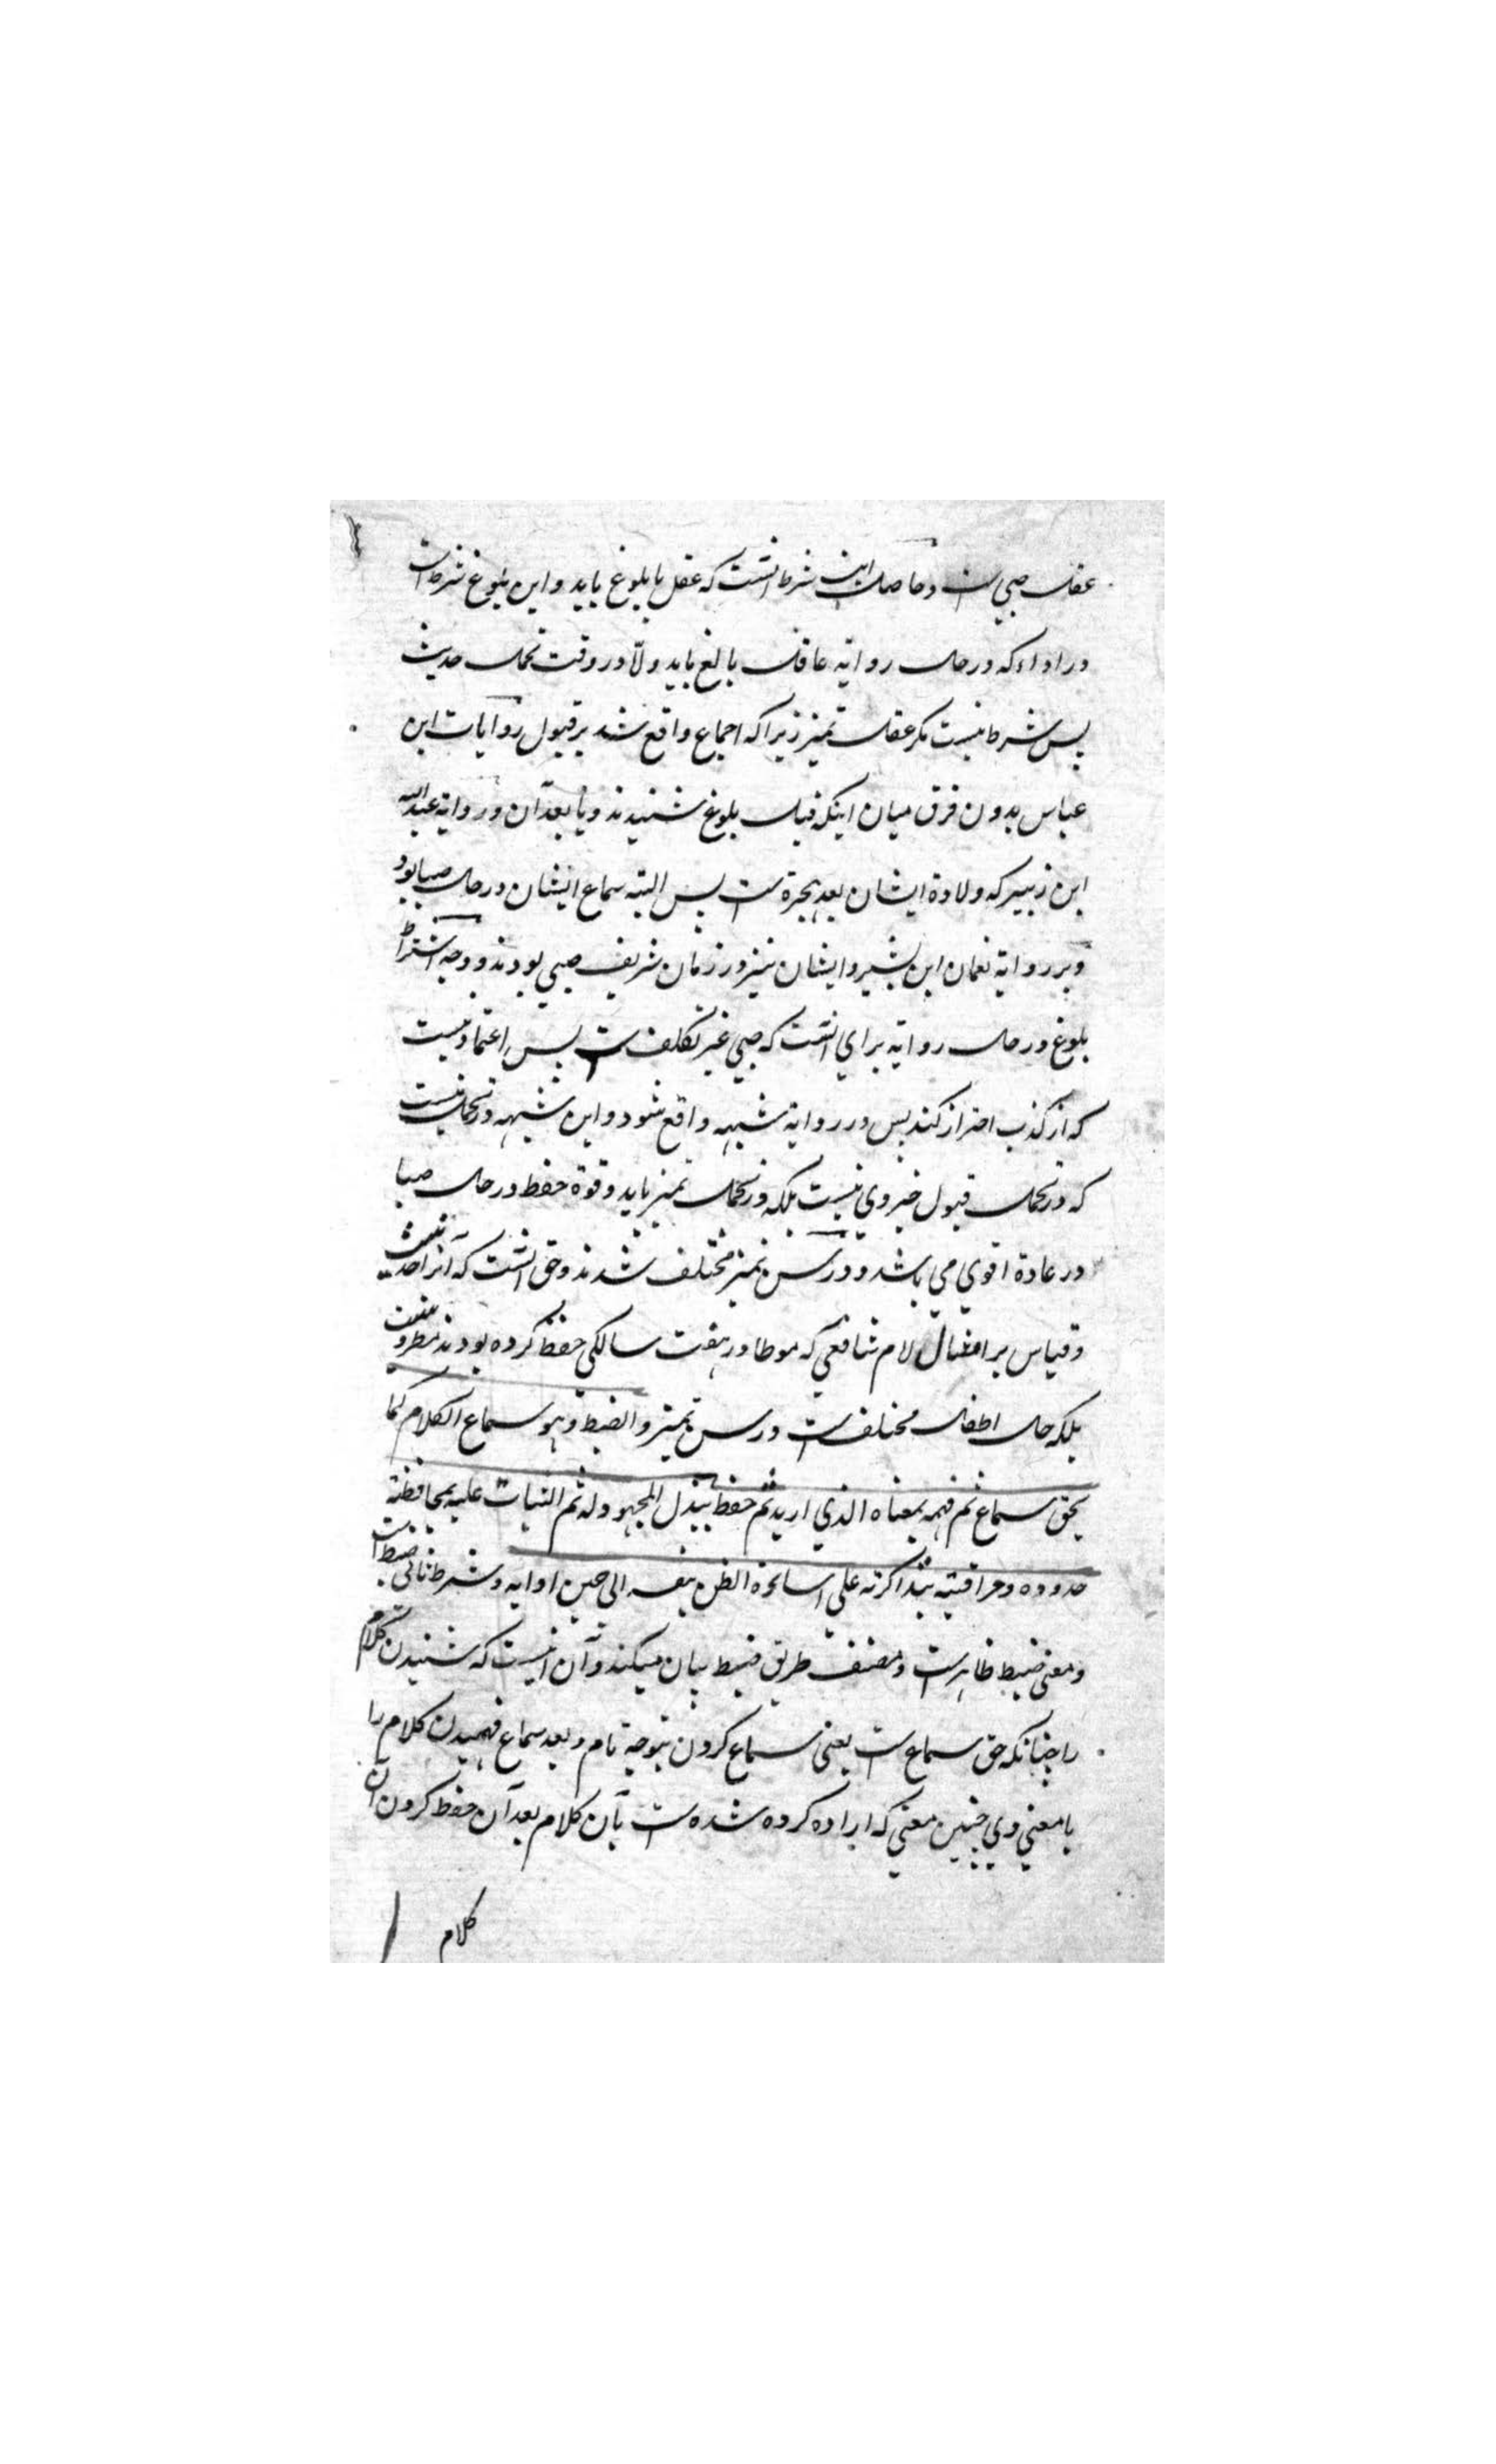 عقل صبی است و حاصل این شرط آنست که عقل با بلوغ باید و این بلوغ شرط است
در اداء که در حال روایة عاقل بالغ باید ولّا در وقت تحمل حدیث
پس شرط نیست مکر عقل تمیز زیرا که اجماع واقع شد بر قبول روایات ابن
عباس بدون فرق میان اینکه قبل بلوغ شنیدند و یا بعد آن و روایة عبد الله
ابن زبیر که ولادة ایشان بعد هجرة است پس البته سماع ایشان در حال صبا بود
و بر روایة نعمان ابن بشیر و ایشان نیز در زمان شریف صبي بودند و وجه اشتراط
بلوغ در حال روایة براي آنست که صبي غیر مکلف است پس اعتماد نیست
که از کذب احتراز کند پس در روایة شبهه واقع شود و این شبهه در تحمل نیست
که در تحمل قبول خبر وي نیست بلکه در تحمل تمیز باید و قوة حفظ در حال صبا
در عادة اقوي مي باشد و در سن تمیز مختلف شدند و حق آنست که آنرا حد نیست
و قیاس بر امثال امام شافعي که موطا در هفت سالکي حفظ کرده بودند مطرد نیست
بلکه حال اطفال مختلف است در سن تمیز والضبط وهو سماع الکلام کما
یحق سماع ثم فهمه بمعناه الذي ارید ثم حفظ ببذل المجهود له ثم الثبات علیه بمحافظة
حدوده ومراقبته بمذاکرته علی اساءة الظن بنفسه الی حین ادایه و شرط ثانی ضبط است
و معنی ضبط ظاهر است و مصنف طریق ضبط بیان میکند و آن اینست که شنیدن کلام
را چنانکه حق سماع است یعنی سماع کردن بتوجه تام و بعد سماع فهمیدن کلام را
با معني وي چنین معني که اراده کرده شده است بآن کلام بعد آن حفظ کردن آن
کلام